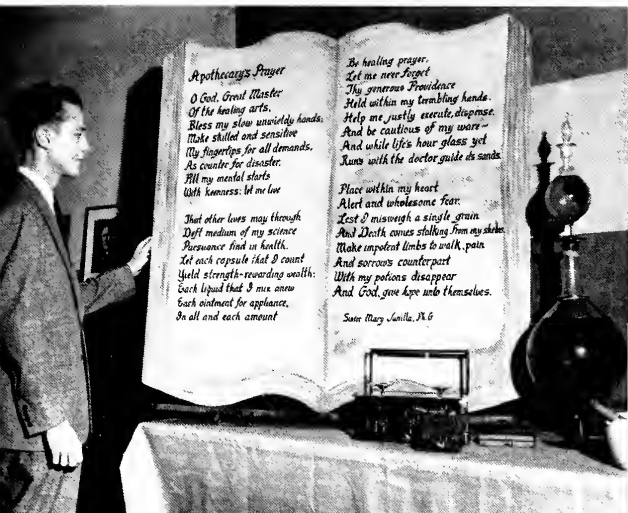 Apothecary's Prayer
O God, Great Master
Of the healing arts,
Bless my slow unwieldy hands;
Make skilled and sensitive
My fingertips for all demands,
As counter for disaster.
Fill my mental starts
With keenness; let me live
That other lives may through
Deft medium of my science
Pursuance find in health.
Let each capsule that I count
Yield strength-rewarding wealth;
Each liquid that I mix anew
Each ointment for appliance,
In all and each amount
Be healing prayer.
Let me never forget
Thy generous Providence
Held within my trembling hands.
Help me justly execute, dispense,
And be cautious of my ware—
And while life's hour glass yet
Runs with the doctor guide its sands.
Place within my heart
Alert and wholesome fear,
Lest I misweigh a single grain
And Death comes stalking from my shelves.
Make impotent limbs to walk, pain
And sorrow's counterpart
With my potions disappear
And God, give hope unto themselves.
Sister Mary Ph.G